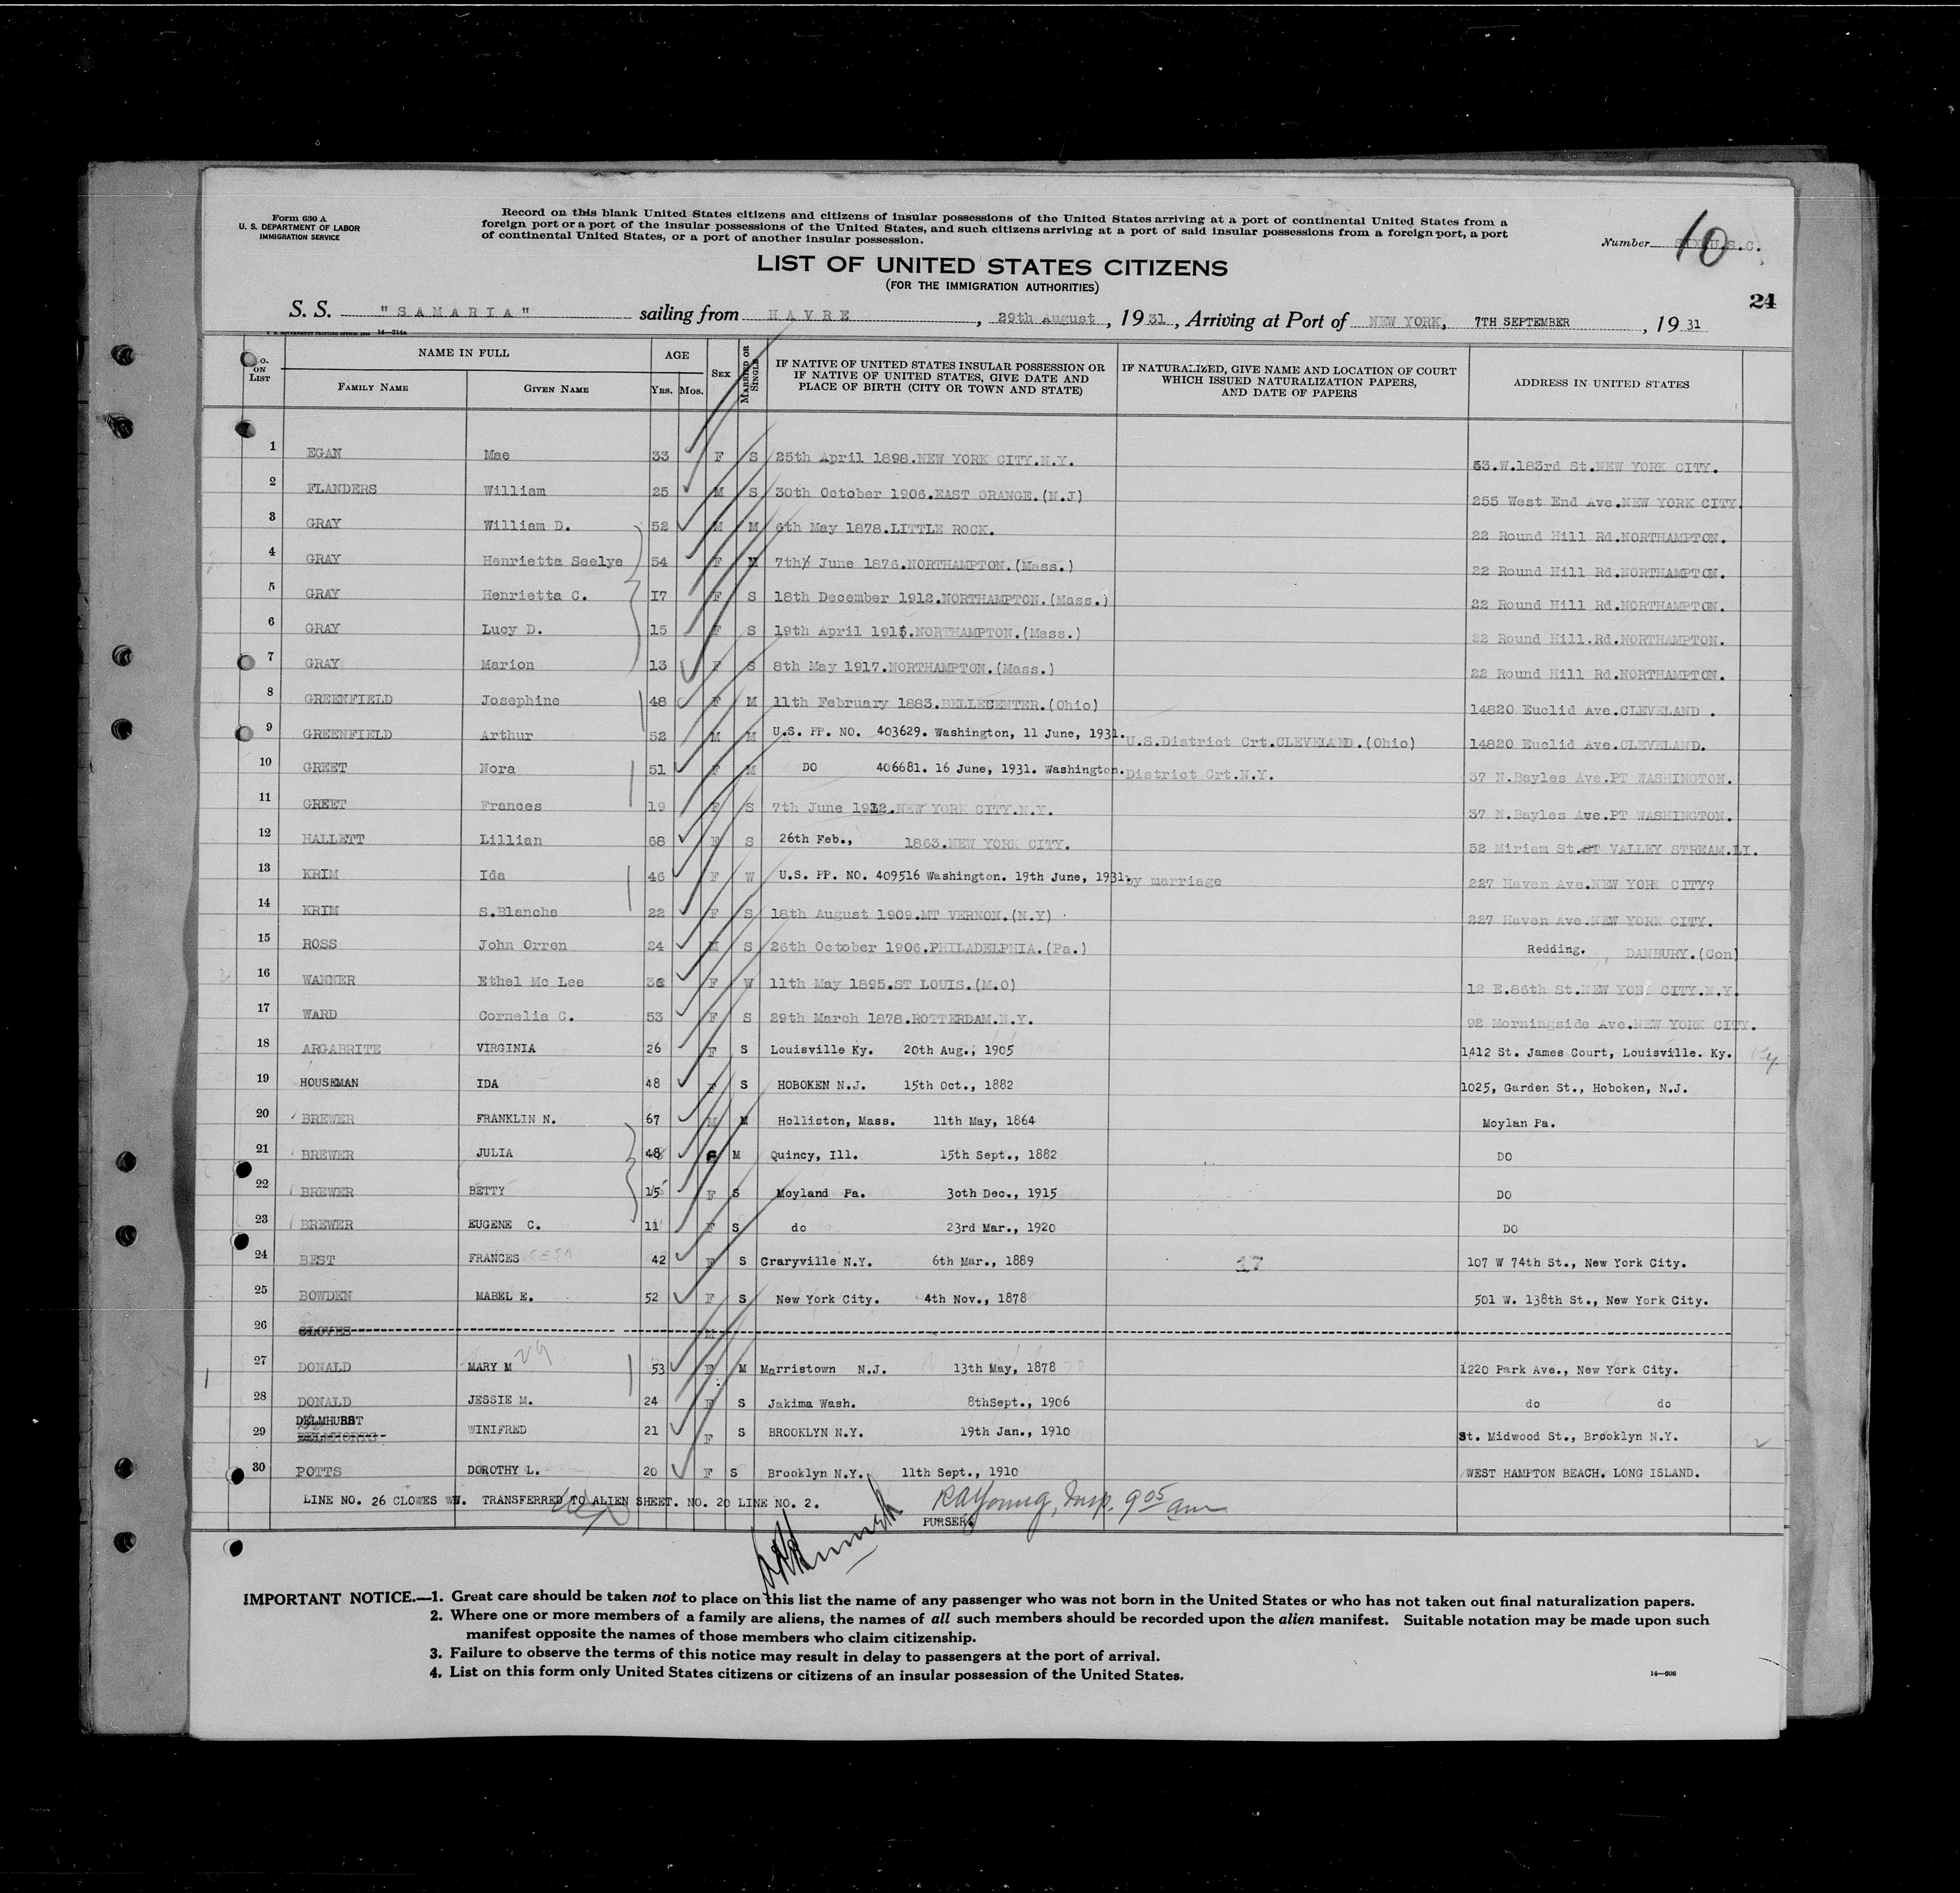 Form 630 A
U. S. DEPARTMENT OF LABOR
IMMIGRATION SERVICE
Record on this blank United States citizens and citizens of insular possessions of the United States arriving at a port of continental United States from a
foreign port or a port of the insular possessions of the United States, and such citizens arriving at a port of said insular possessions from a foreign port, a port
of continental United States, or a port of another insular possession.
Number U.S.C. 10
LIST OF UNITED STATES CITIZENS
(FOR THE IMMIGRATION AUTHORITIES)
24
S. S. "SAMARIA" sailing from HAVRE, 29th August, 1931, Arriving at Port of NEW YORK, 7TH SEPTEMBER, 1931
No. ON LIST NAME IN FULL FAMILY NAME GIVEN NAME AGE YRS. MOS. SEX MARRIED OR SINGLE IF NATIVE OF UNITED STATES INSULAR POSSESSION OR IF NATIVE OF UNITED STATES, GIVE DATE AND PLACE OF BIRTH (CITY OR TOWN AND STATE) IF NATURALIZED, GIVE NAME AND LOCATION OF COURT WHICH ISSUED NATURALIZATION PAPERS, AND DATE OF PAPERS ADDRESS IN UNITED STATES
1 EGAN Mae 33 F S 25th April 1898.NEW YORK CITY.N.Y. 53.W.183rd St.NEW YORK CITY.
2 FLANDERS William 25 M S 30th October 1906.EAST ORANGE.(N.J) 255 West End Ave.NEW YORK CITY.
3 GRAY William D. 52 M M 6th May 1878.LITTLE ROCK. 22 Round Hill Rd.NORTHAMPTON.
4 GRAY Henrietta Seelye 54 F M 7th June 1876.NORTHAMPTON.(Mass.) 22 Round Hill Rd.NORTHAMPTON.
5 GRAY Henrietta C. 17 F S 18th December 1912.NORTHAMPTON.(Mass.) 22 Round Hill Rd.NORTHAMPTON.
6 GRAY Lucy D. 15 F S 19th April 1915.NORTHAMPTON.(Mass.) 22 Round Hill.Rd.NORTHAMPTON.
7 GRAY Marion 13 F S 8th May 1917.NORTHAMPTON.(Mass.) 22 Round Hill Rd.NORTHAMPTON.
8 GREENFIELD Josephine 48 F M 11th February 1883.BELLECENTER.(Ohio) 14820 Euclid Ave.CLEVELAND .
9 GREENFIELD Arthur 52 M M U.S. PP. NO. 403629. Washington, 11 June, 1931. U.S.District Crt.CLEVELAND.(Ohio) 14820 Euclid Ave.CLEVELAND.
10 GREET Nora 51 F M DO 406681. 16 June, 1931. Washington. District Crt.N.Y. 37 N.Bayles Ave.PT WASHINGTON.
11 GREET Frances 19 F S 7th June 1912.NEW YORK CITY.N.Y. 37 N.Bayles Ave.PT WASHINGTON.
12 HALLETT Lillian 68 F S 26th Feb., 1863.NEW YORK CITY. 52 Miriam St. VALLEY STREAM.LI.
13 KRIM Ida 46 F W U.S. PP. NO. 409516 Washington. 19th June, 1931. by marriage 227 Haven Ave.NEW YORK CITY?
14 KRIM S.Blanche 22 F S 18th August 1909.MT VERNON.(N.Y) 227 Haven Ave.NEW YORK CITY.
15 ROSS John Orren 24 M S 26th October 1906.PHILADELPHIA.(Pa.) Redding. , DANBURY.(Con)
16 WANNER Ethel Mc Lee 36 F W 11th May 1895.ST LOUIS.(M.O) 12 E.86th St.NEW YORK CITY.N.Y.
17 WARD Cornelia C. 53 F S 29th March 1878.ROTTERDAM.N.Y. 92 Morningside Ave.NEW YORK CITY.
18 ARGABRITE VIRGINIA 26 F S Louisville Ky. 20th Aug., 1905 1412 St. James Court, Louisville. Ky. Ky.
19 HOUSEMAN IDA 48 F S HOBOKEN N.J. 15th Oct., 1882 1025, Garden St., Hoboken, N.J.
20 BREWER FRANKLIN N. 67 M M Holliston, Mass. 11th May, 1864 Moylan Pa.
21 BREWER JULIA 48 F M Quincy, Ill. 15th Sept., 1882 DO
22 BREWER BETTY 15 F S Moyland Pa. 30th Dec., 1915 DO
23 BREWER EUGENE C. 11 F S do 23rd Mar., 1920 DO
24 BEST FRANCES 42 F S Craryville N.Y. 6th Mar., 1889 17 107 W 74th St., New York City.
25 BOWDEN MABEL E. 52 F S New York City. 4th Nov., 1878 501 W. 138th St., New York City.
26 CLOVES M
27 DONALD MARY M 29 53 F M Marristown N.J. 13th May, 1878 1220 Park Ave., New York City.
28 DONALD JESSIE M. 24 F S Jakima Wash. 8thSept., 1906 do do
29 DELMHURST WINIFRED 21 F S BROOKLYN N.Y. 19th Jan., 1910 St. Midwood St., Brooklyn N.Y.
30 POTTS DOROTHY L. 20 F S Brooklyn N.Y. 11th Sept., 1910 WEST HAMPTON BEACH. LONG ISLAND.
LINE NO. 26 CLOWES WM. TRANSFERRED TO ALIEN SHEET. NO. 20 LINE NO. 2.
RA Young, Insp. 9 05 am
PURSER.
IMPORTANT NOTICE.—1. Great care should be taken not to place on this list the name of any passenger who was not born in the United States or who has not taken out final naturalization papers.
2. Where one or more members of a family are aliens, the names of all such members should be recorded upon the alien manifest. Suitable notation may be made upon such
manifest opposite the names of those members who claim citizenship.
3. Failure to observe the terms of this notice may result in delay to passengers at the port of arrival.
4. List on this form only United States citizens or citizens of an insular possession of the United States.
14—608